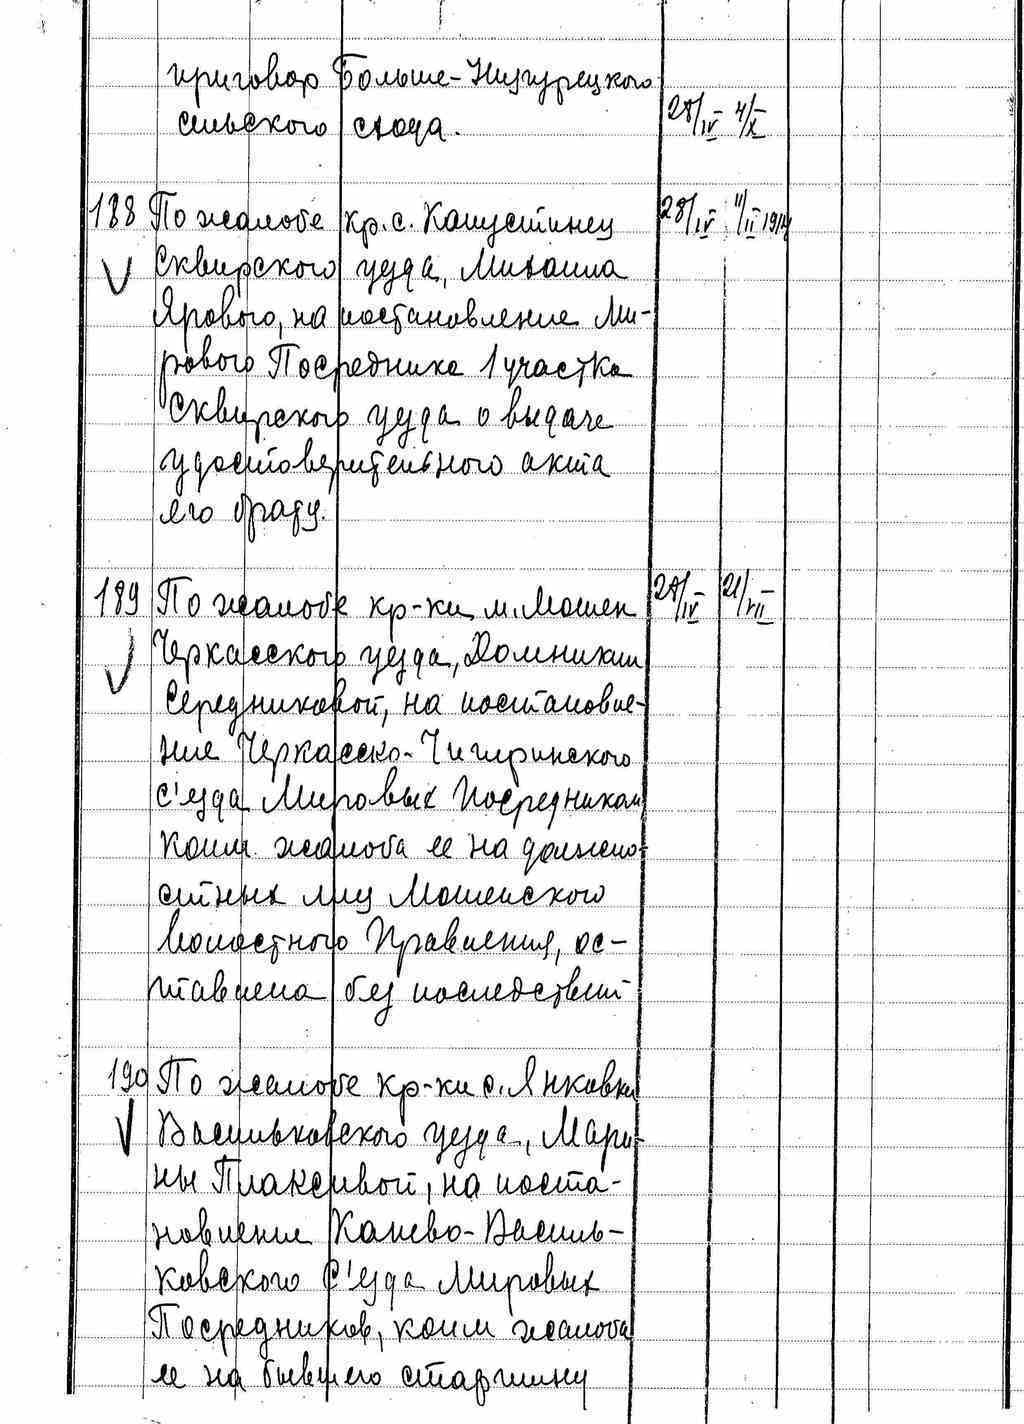 приговор Больше-Низгурецкого
сельского схода. 28/IV 4/X
188 По жалобе кр. с. Капустинец 28/IV 11/II 1914
Сквирского уезда, Михаила
Ярового, на постановление Ми-
рового Посредника 1 участка
Сквирского уезда о выдаче
удостоверительного акта
его брату.
189 По жалобе кр-ки м. Мошен 28/IV 21/VII
Черкасского уезда, Домникии
Середниковой, на постановле-
ние Черкасско-Чигиринского
с'езда Мировых Посредников
коим жалоба ее на должно-
стных лиц Мошенского
Волостного Правления, ос-
тавлена без последствий
190 По жалобе кр-ки с. Янковки
Васильковского уезда, Мари-
ны Плаксивой, на поста-
новление Канево-Василь-
ковского С'езда Мировых
Посредников, коим жалоба
ее на бывшего старшину